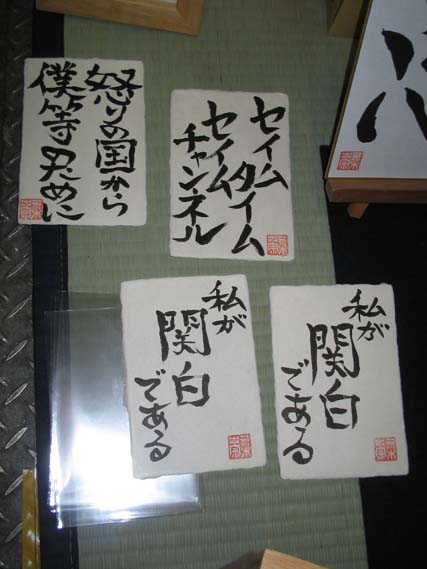 怒りの国から
僕等乃ために
セイム
タイム
セイム
チャンネル
私が
関白
である
私が
関白
である